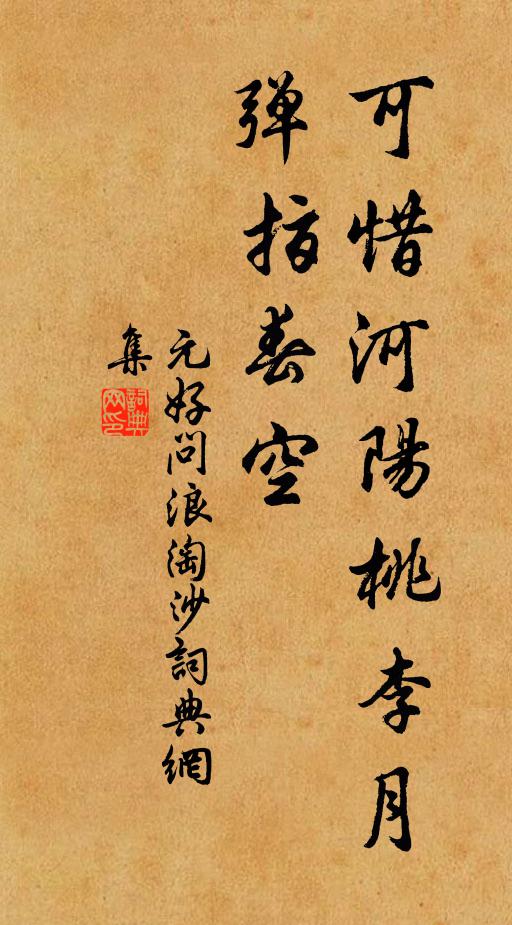 可惜河陽桃李月
弹指春空
元好问浪淘沙詞典網
集
詞典網印